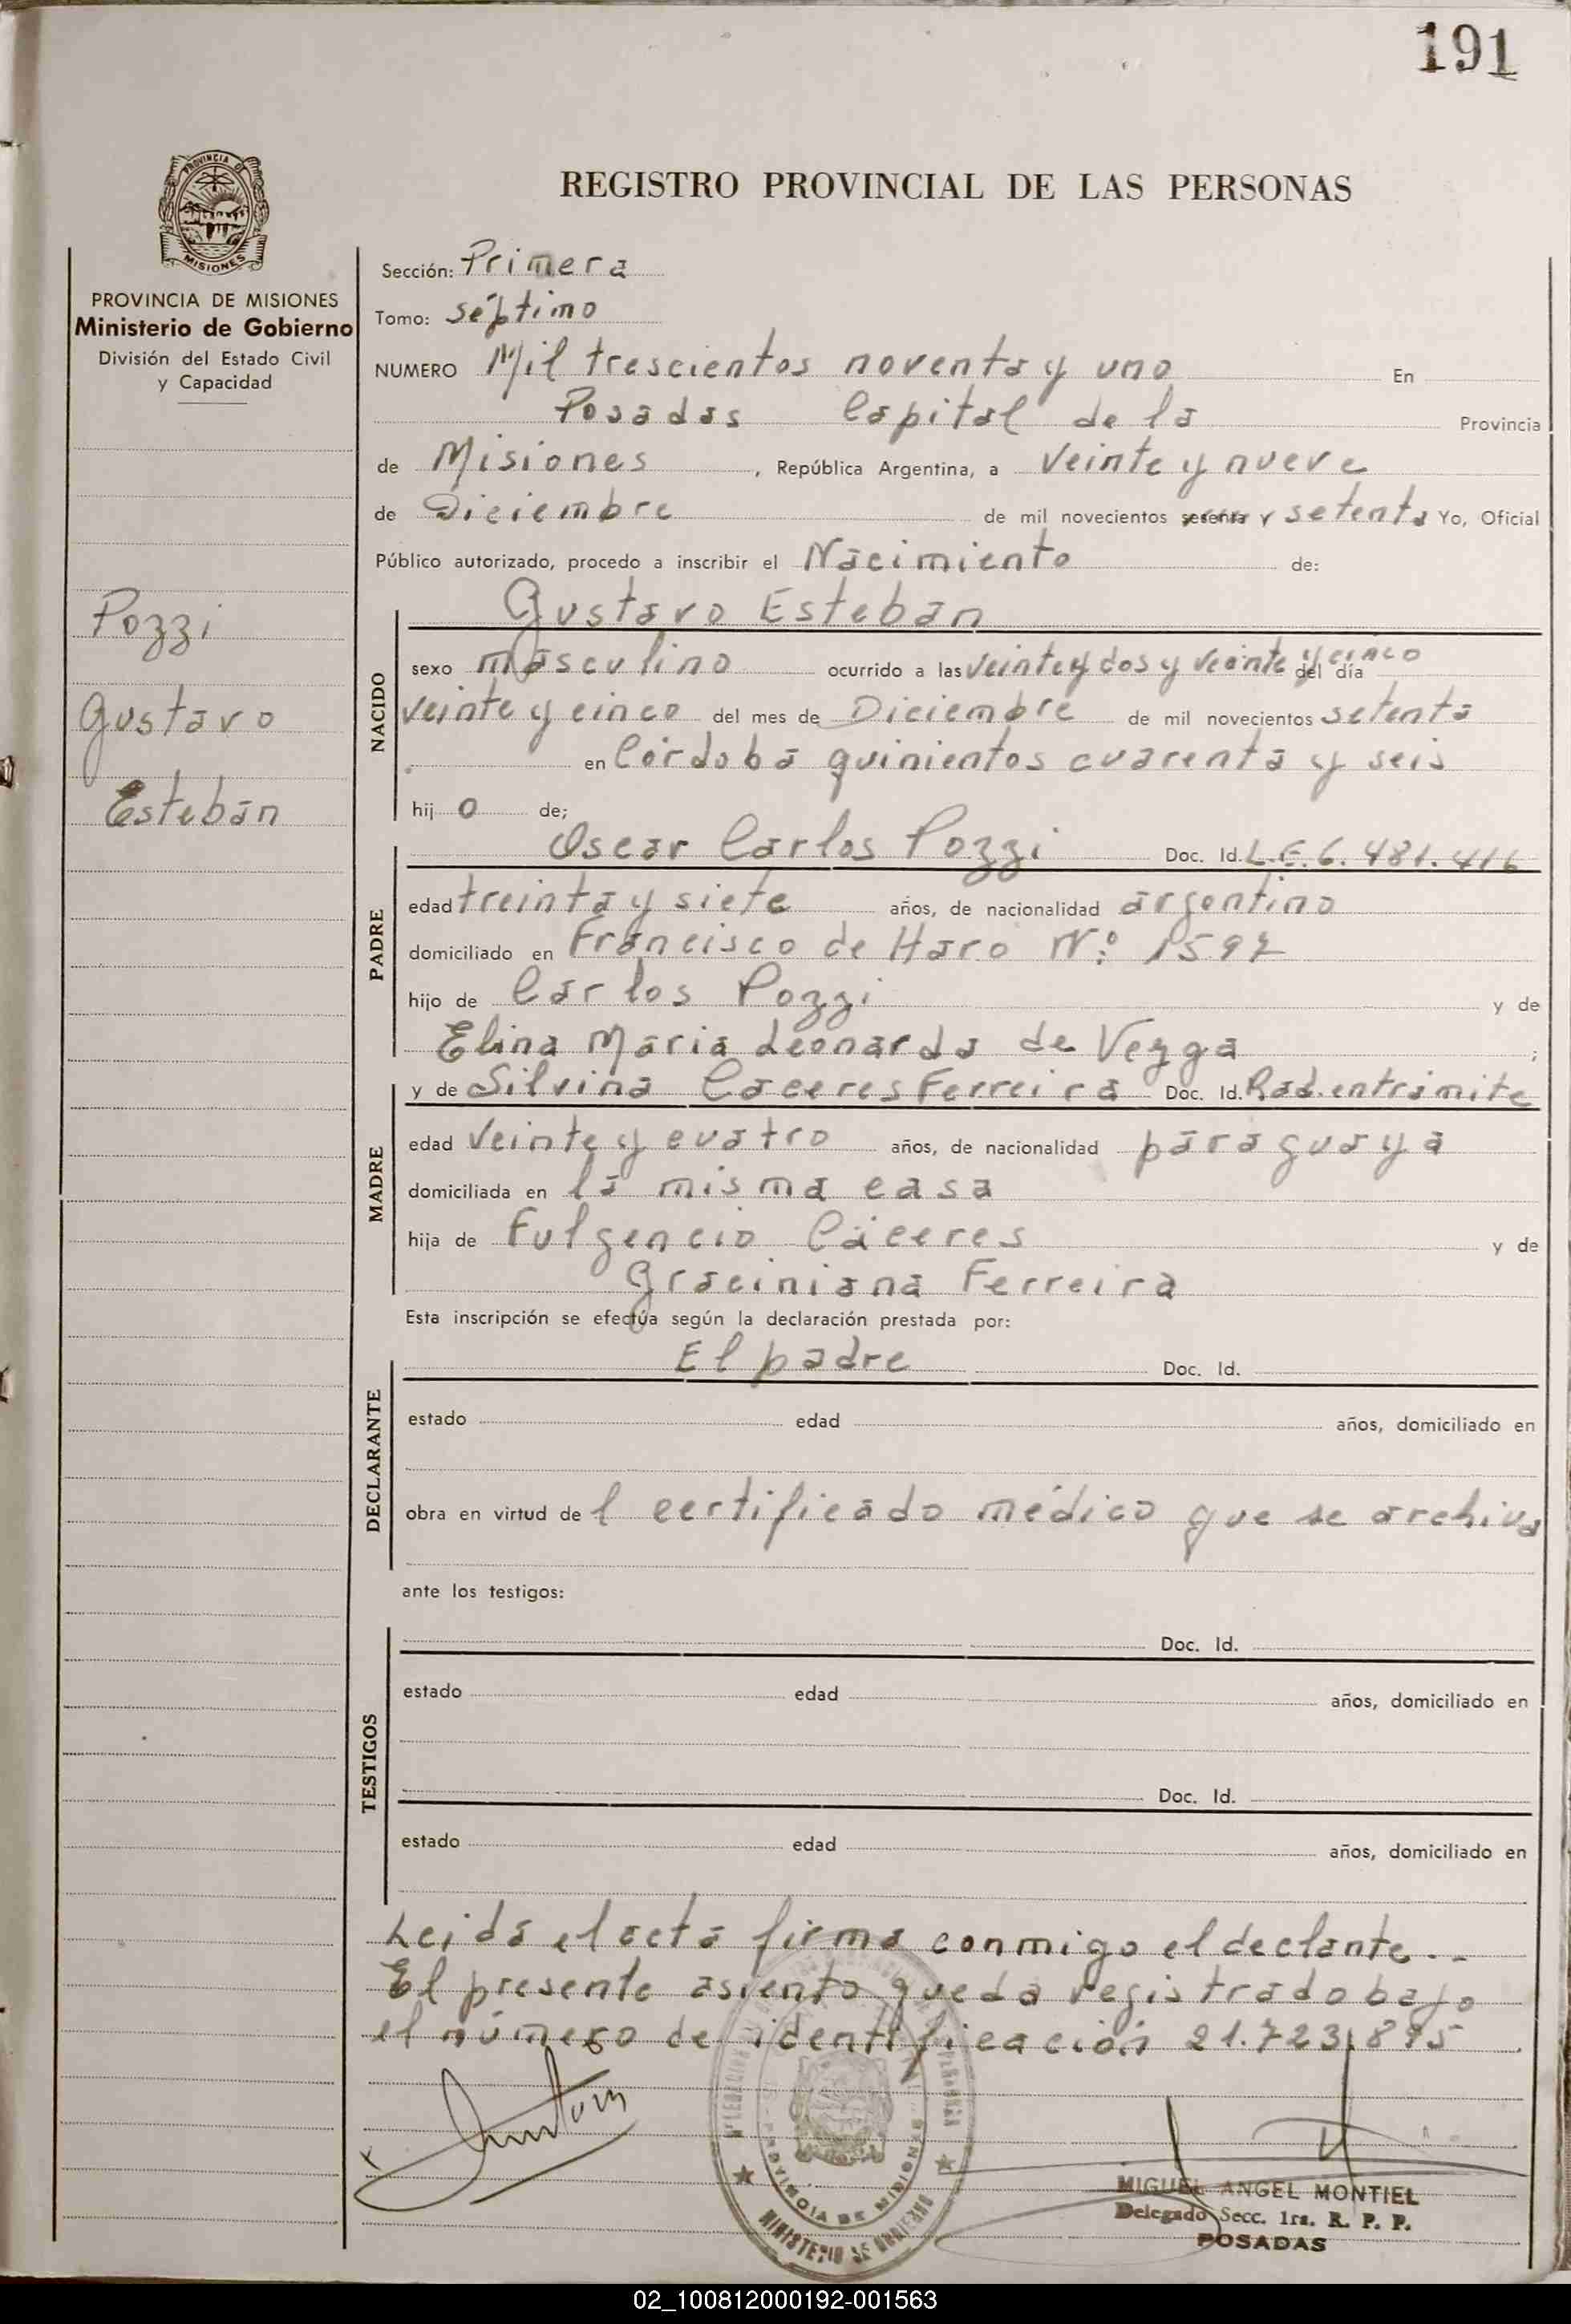 191
REGISTRO PROVINCIAL DE LAS PERSONAS
PROVINCIA DE MISIONES
Ministerio de Gobierno
División del Estado Civil
y Capacidad
Pozzi
Gustavo
Esteban
Sección: Primera
Tomo: séptimo
NUMERO Mil trescientos noventa y uno En
Posadas Capital de la Provincia
de Misiones, República Argentina, a Veinte y nueve
de Diciembre de mil novecientos sesenta y setenta Yo, Oficial
Público autorizado, procedo a inscribir el Nacimiento de:
Gustavo Esteban
NACIDO
sexo masculino ocurrido a las veinte y dos y veinte y cinco del día
veinte y cinco del mes de Diciembre de mil novecientos setenta
en Córdoba quinientos cuarenta y seis
hij o de;
Oscar Carlos Pozzi Doc. Id. L.E. 6.481.416
PADRE
edad treinta y siete años, de nacionalidad argentino
domiciliado en Francisco de Haro Nº: 1597
hijo de Carlos Pozzi y de
Elina Maria Leonarda de Vezga ;
y de Silvina Caceres Ferreira Doc. Id. Rad. en trámite
MADRE
edad Veinte y cuatro años, de nacionalidad paraguaya
domiciliada en la misma casa
hija de Fulgencio Cáceres y de
Graciniana Ferreira
Esta inscripción se efectúa según la declaración prestada por:
El padre Doc. Id.
DECLARANTE
estado edad años, domiciliado en
obra en virtud de l certificado médico que se archiva
ante los testigos:
Doc. Id.
TESTIGOS
estado edad años, domiciliado en
Doc. Id.
estado edad años, domiciliado en
Leida el acta firma conmigo el declante..
El presente asiento queda registrado bajo
el número de identificación 21.723.895
PROVINCIA DE MISIONES
MINISTERIO DE GOBIERNO
MIGUEL ANGEL MONTIEL
Delegado Secc. 1ra. R. P. P.
POSADAS
02_100812000192-001563